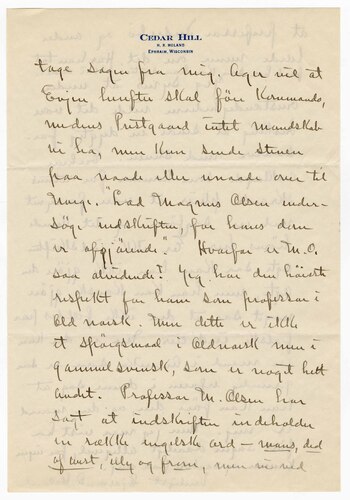 CEDAR HILL
H. R. HOLAND
EPHRAIM, WISCONSIN
tage sagen fra mig. Ager vil at
Evjen herefter skal føre Kommando,
medens Pristgaard intet mandskab
vil ha, men kun sende stenen
paa naade eller unaade over til
Norge. "Lad Magnus Olsen under-
søge indskriften, for hans dom
er afgjørende". Hvorfor er M.O.
saa alvidende? Jeg har den høieste
respekt for ham som professor i
Old norsk. Men dette er ikke
et spörgsmaal i Oldnorsk men i
gammelsvensk, som er noget helt
andet. Professor M. Olsen har
sagt at indskriften indeholder
en række engelske ord – mans, ded
of west, illy og from, men en ved